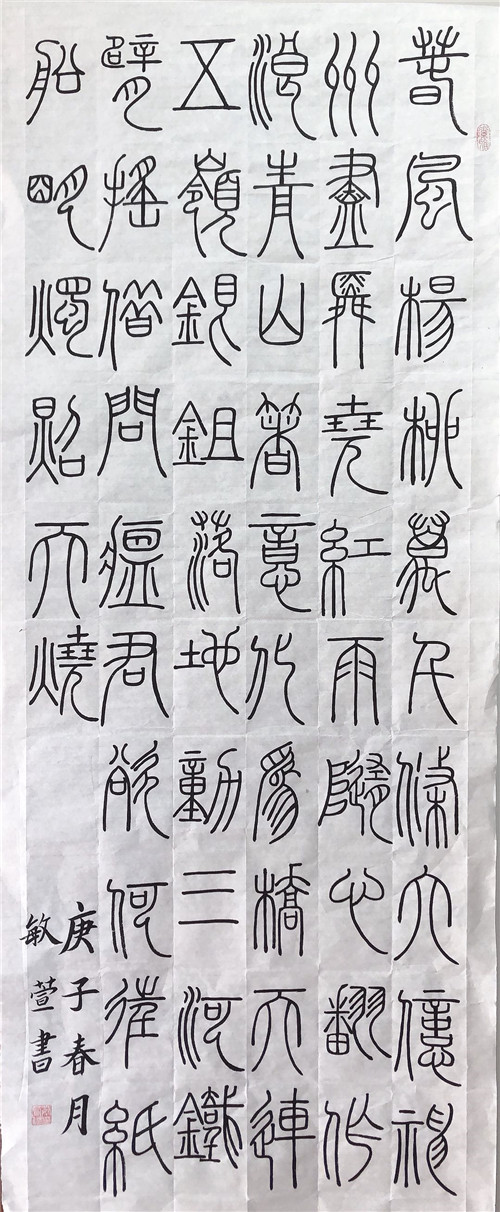 春風楊柳萬千條六億神
州盡舜堯紅雨隨心翻作
浪青山著意化爲橋天連
五嶺銀鉏落地動三河鐵
臂搖借問瘟君欲何往紙
船明燭照天燒
庚子春月
敏萱書